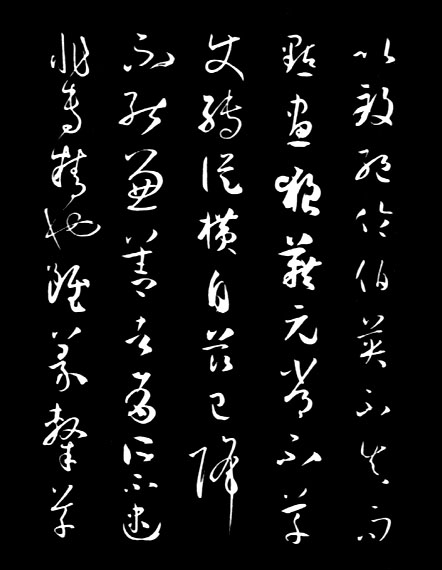 以致絕倫伯英不真而
點畫狼藉元常不草
使轉縱橫自茲已降
不能兼善者有所不逮
非專精也雖篆隸草